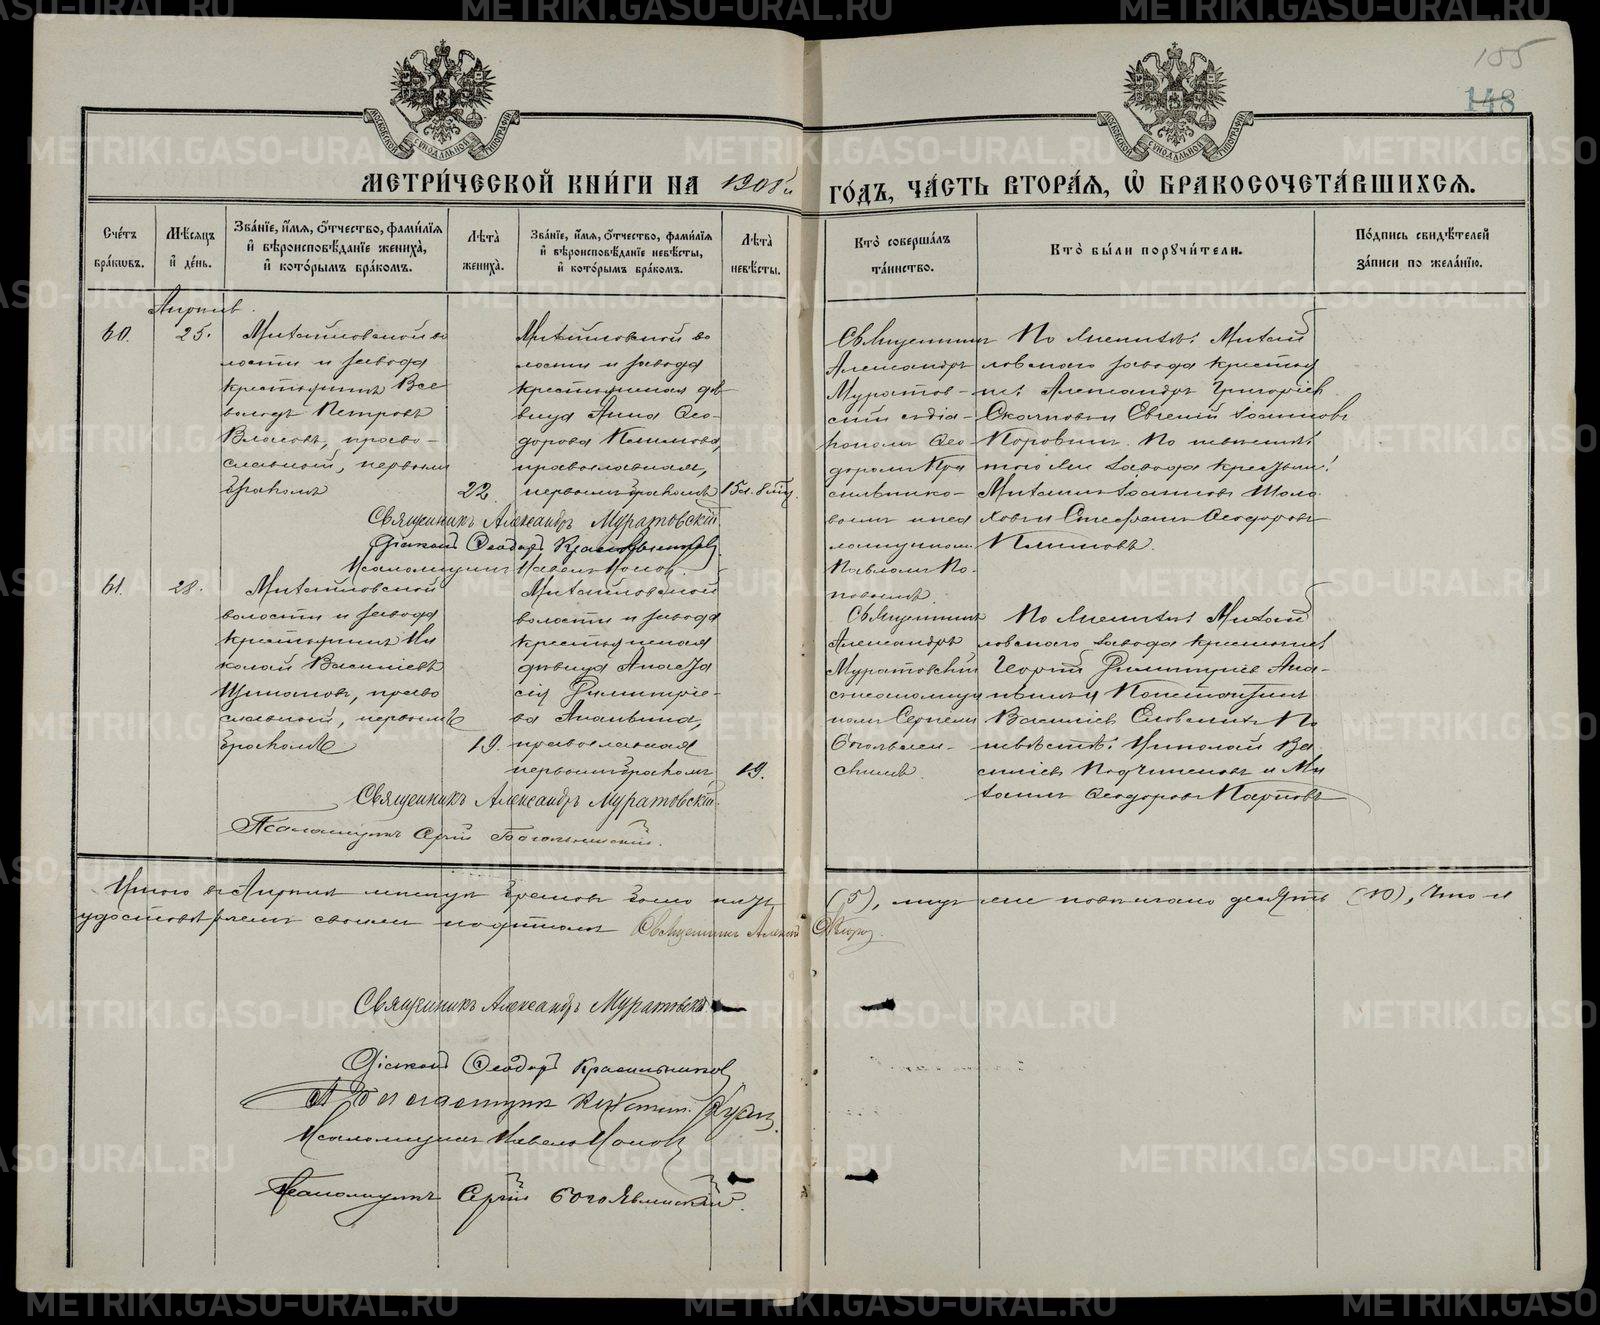 155
148
МОСКОВСКОЙ СѴНОДАЛЬНОЙ ТИПОГРАФІИ
МОСКОВСКОЙ СѴНОДАЛЬНОЙ ТИПОГРАФІИ
МЕТРИ́ЧЕСКОЙ КНИ́ГИ НА 1908 ГО́ДЪ, ЧА́СТЬ ВТОРА́Я, Ѡ҆ БРАКОСОЧЕТА́ВШИХСЯ.
Сче́тъ бра́кѡвъ.
Мѣ́сяцъ и҆ де́нь.
Зва́нїе, и҆́мя, ѻ҆́тчество, фами́лїя и҆ вѣроисповѣ́данїе жениха̀, и҆ кото́рымъ бра́комъ.
Лѣ́та жениха̀.
Зва́нїе, и҆́мя, ѻ҆́тчество, фами́лїя и҆ вѣроисповѣ́данїе невѣ́сты, и҆ кото́рымъ бра́комъ.
Лѣ́та невѣ́сты.
Кто̀ соверша́лъ та́инство.
Кто̀ бы́ли порꙋчи́тели.
По́дпись свидѣ́телей за́писи по жела́нїю.
60.
25.
Михайловской во
лости и завода
крестьянинъ Все
володъ Петровъ
Власовъ, право-
славный, первымъ
бракомъ
22.
Михайловской во
лости и завода
крестьянская дѣ-
вица Анна Ѳео-
дорова Климова,
православная,
первымъ бракомъ
Священникъ
Александръ
Муратов-
скій съ діа-
кономъ Ѳео
доромъ Кра
сильнико-
вымъ и пса
ломщикомъ
Павломъ По-
повымъ
По женихѣ: Михай
ловскаго завода крестья
не: Александръ Григоріев
и Евгеній Іоанновъ
Коровинъ. По невѣстѣ:
того же завода крестьяне:
Іоанновъ Шоло
ховъ и Стефанъ Ѳеодоровъ
Климовъ.
Священникъ Александръ Муратовскій
Діаконъ Ѳеодоръ Красильниковъ
Псаломщикъ Павелъ Поповъ
61.
28.
Михайловской
волости и завода
крестьянинъ Ни
колай Васильевъ
право
славный, первымъ
бракомъ
19.
Михайловской
волости и завода
крестьянская
дѣвица Анаста
сія Димитріе-
ва Ананьина,
православная
первымъ бракомъ
19.
Священникъ
Александръ
Муратовскій
съ псаломщи
комъ Сергіемъ
Богоявлен-
скимъ
По женихѣ: Михай
ловскаго завода крестьяне:
Георгій Димитріев Ана-
ньинъ и Константинъ
Васильев По
невѣстѣ: Николай Ва
сильев и Ми
хаилъ Ѳеодоровъ Карповъ
Священникъ Александръ Муратовскій
Псаломщикъ Сергій Богоявленскій.
Итого въ Апрѣлѣ мѣсяцѣ браковъ было пять (5), лицъ въ нихъ повѣнчано десять (10), что и
удостовѣряемъ своимъ подписомъ
Священникъ Александръ Муратовскій
Діаконъ Ѳеодоръ Красильниковъ
Псаломщикъ Павелъ Поповъ
Псаломщикъ Сергій Богоявленскій.
METRIKI.GASO-URAL.RU